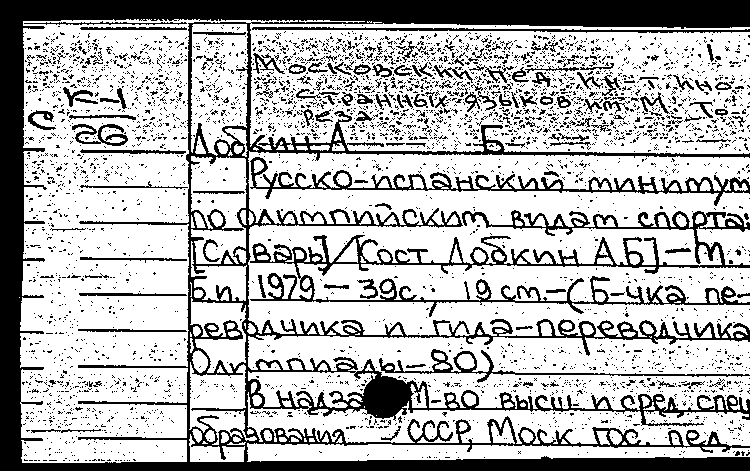 1.
Московский пед. ин-т. ино-
странных языков им. М. То-
реза
С К-1
26
Добкин, А Б
Русско-испанский минимум
по олимпийским видам спорта:
[Словарь]/[Сост. Добкин А.Б].-М.:
Б.и., 1979.- 39с.; 19 см.-(Б-чка пе-
реводчика и гида-переводчика
Олимпиады-80)
В надзаг М-во высш и сред. спец
образования СССР, Моск. гос. пед.